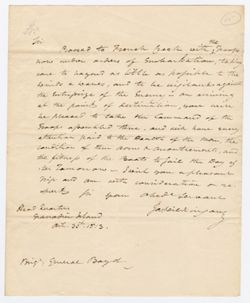 Sir
Proceed to French Creek with the Troops
now under orders of Embarkation, taking
care to hazard as little as possible to the
winds & waves, and to be vigilant against
the Enterprize of the Enemy on arriving
at the point of destination, you will
be pleased to take the Command of the
Troops assembled there, and will have every
attention paid to the Health of the Men, the
condition of their Arms & Accoutrements, and
the fitness of the Boats to sail the Day
after Tomorrow — I wish you a pleasant
trip and am with consideration & re-
spect Sir your Obedt Servant
Head Quarters
Grenadier Island
Oct. 1813.
Brigr General Boyd